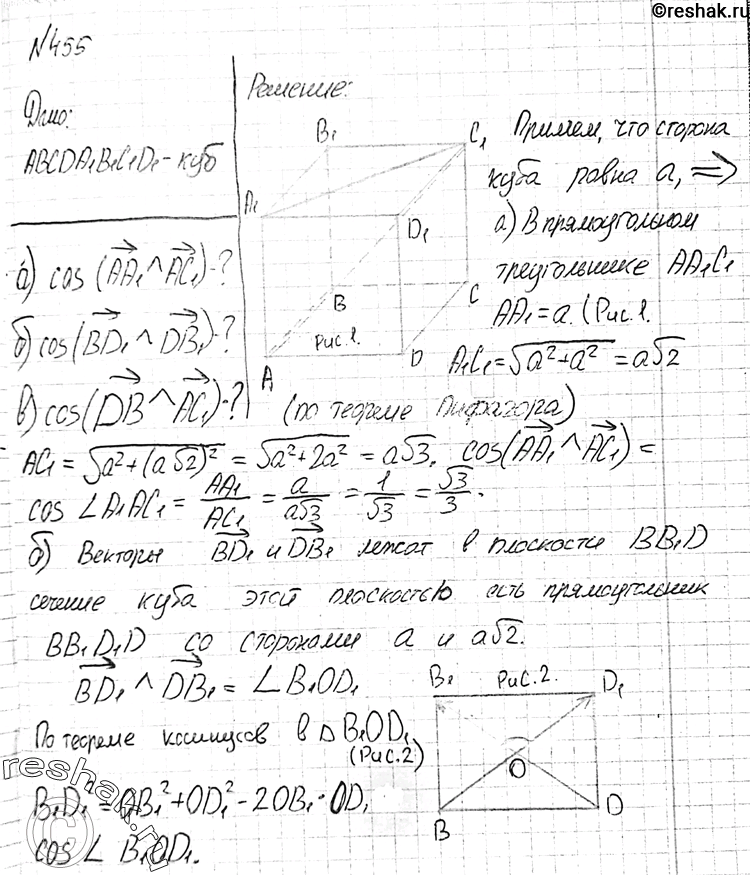 ©reshak.ru
№455
Дано:
ABCDA₁B₁C₁D₁ - куб
а) cos (AA₁ ^ AC₁) - ?
б) cos (BD₁ ^ DB₁) - ?
в) cos (DB ^ AC₁) - ?
Решение:
B₁
C₁
A₁
D₁
B
C
Рис. 1.
A
D
Примем, что сторона
куба равна a, ⟹
а) В прямоугольном
треугольнике AA₁C₁
AA₁ = a. (Рис. 1.
A₁C₁ = √a² + a² = a√2
(по теореме Пифагора)
AC₁ = √a² + (a√2)² = √a² + 2a² = a√3. cos (AA₁ ^ AC₁) =
cos ∠A₁AC₁ = AA₁/AC₁ = a/a√3 = 1/√3 = √3/3.
б) Векторы BD₁ и DB₁ лежат в плоскости BB₁D
сечение куба этой плоскостью есть прямоугольник
BB₁D₁D со сторонами a и a√2.
BD₁ ^ DB₁ = ∠B₁OD₁
По теореме косинусов в △B₁OD₁
(Рис. 2)
B₁D₁² = OB₁² + OD₁² - 2OB₁ · OD₁
cos ∠ B₁OD₁.
B₁
Рис. 2.
D₁
O
B
D
reshak.ru